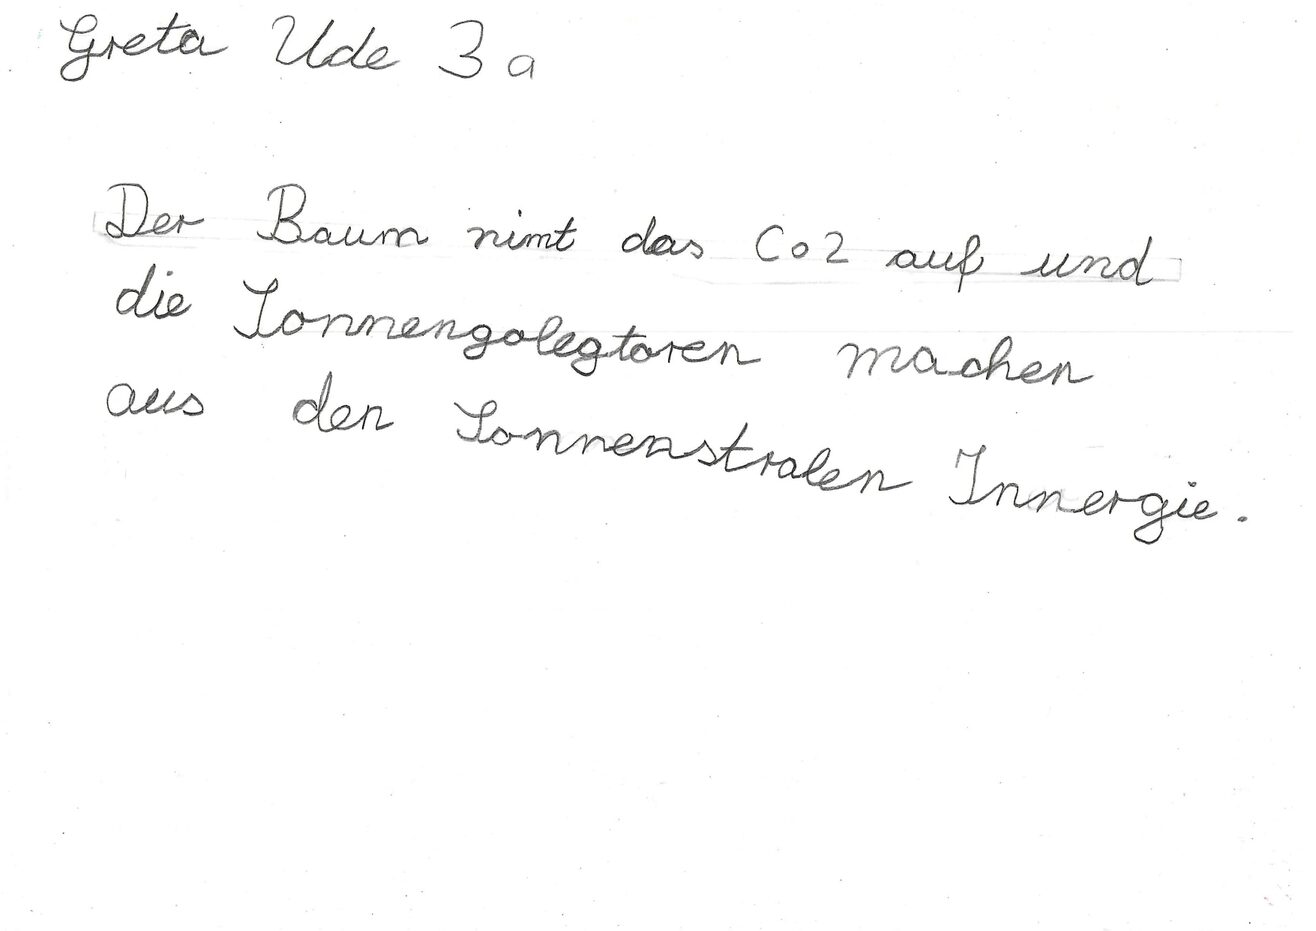 Greta Ude 3a
Der Baum nimt das Co2 auf und
die Sonnengolegtoren machen
aus den Sonnenstralen Innergie.